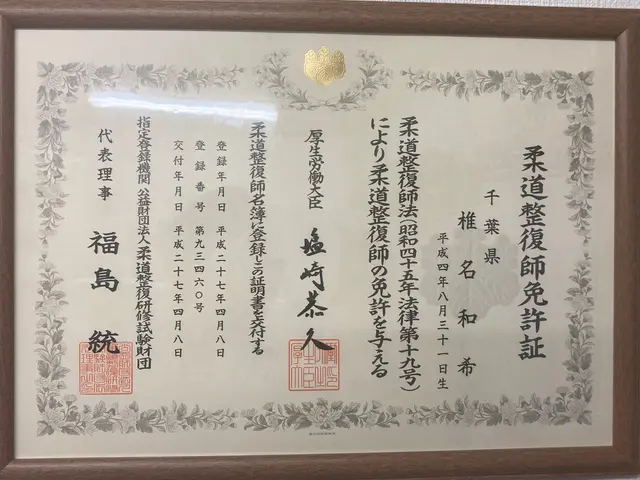 柔道整復師免許証
千葉県
椎名和希
平成四年八月三十一日生
柔道整復師法(昭和四十五年法律第十九号)
により柔道整復師の免許を与える
厚生労働大臣 塩崎恭久
柔道整復師名簿に登録しこの証明書を交付する
登録年月日 平成二十七年四月八日
登録番号 第九三四六〇号
交付年月日 平成二十七年四月八日
指定登録機関 公益財団法人 柔道整復研修試験財団
代表理事 福島統